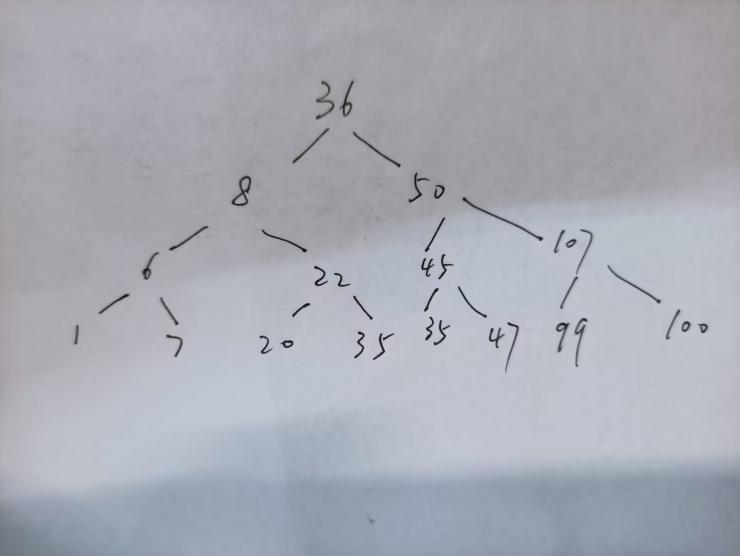 36
8 50
6 22 45 107
1 7 20 35 35 47 99 100